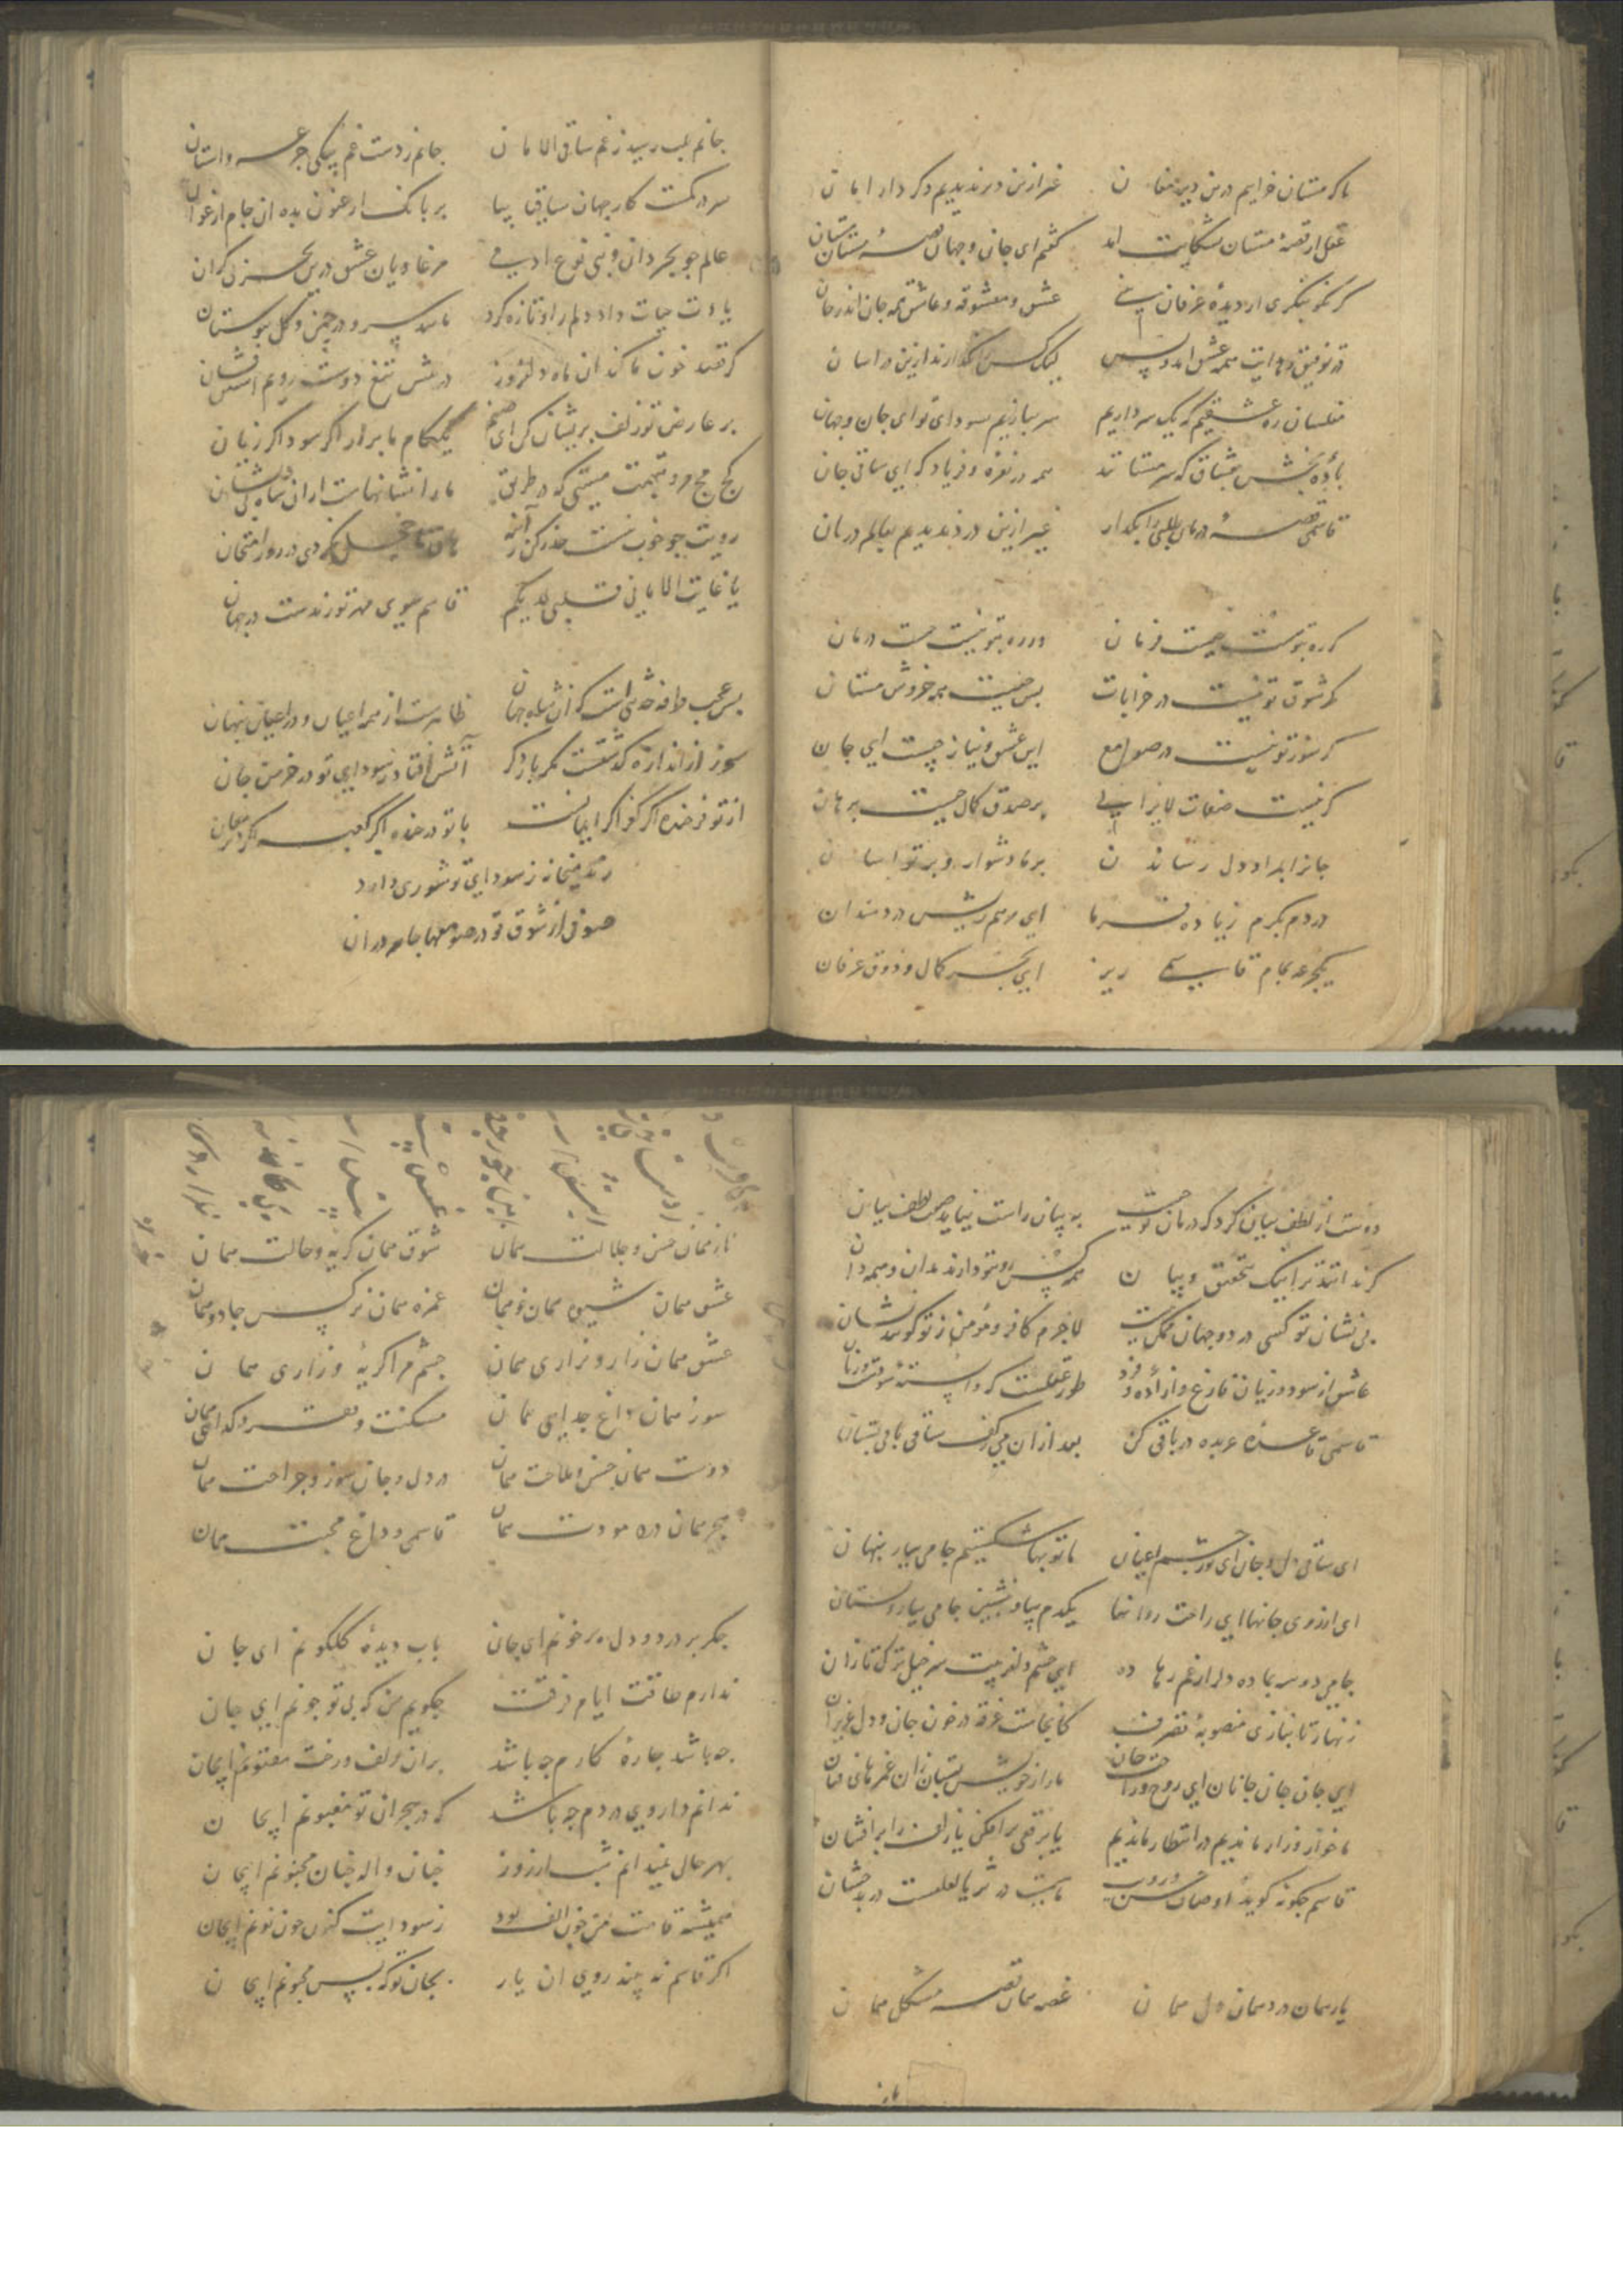 ما که مستان خرابیم درین دیر مغان غیر ازین در ندیدیم دکر دار امان
عقل از قصهٔ مستان بشکایت آمد کفتم ای جان و جهان قصهٔ مستان مستان
کر نکو بنکری از دیدهٔ عرفان بینی عشق و معشوقه و عاشق همه جان اندر جان
در توفیق و هدایت همه عشق آمد و بس
مفلسان ره عشقیم که یک سر داریم سر ببازیم بسودای تو ای جان و جهان
بادهٔ بخش بعشاق که سرمستانند همه در نعره و فریاد که ای ساقی جان
قاسمی قصهٔ درمان طلبی را بکذار غیر ازین درد ندیدیم بعالم درمان
کر ره بتو نیست چیست فرمان ور ره بتو نیست چیست درمان
کر شوق تو نیست در خرابات پس چیست همه خروش مستان
کر شور تو نیست در صوامع این عشق و نیاز چیست ای جان
کر نیست صفات لایزالی بر صدق کمال چیست برهان
جانرا بمراد دل رساندن بر ما دشوار و بر تو آسان
دردم بکرم زیاده فرما ای مرهم ریش دردمندان
یکجرعه بجام قاسمی ریز ای بحر کمال و ذوق عرفان
جانم بلب رسید ز غم ساقی الامان جانم ز دست غم بیکی جرعه واستان
سردر کمست کار جهان ساقی بیا بر بانک ارغنون بده آن جام ارغوان
عالم چو بحر دان و بنی نوع آدمی مرغابیان عشق درین بحر بی کران
یادت حیات داد دلم را و تازه کرد مانند سرو در چمن و کل ببوستان
کر قصد خون ما کند آن ماه دلفروز در پیش تیغ دوست رویم آستین فشان
بر عارض تو زلف پریشان کن ای صنم یکبکام ما برآر اکر سود اکر زیان
کج مج مرو بتهمت هستی که در طریق ما را نشانهاست از آن شاه بی نشان
رویت چو خوب نیست حذر کن ز آینه هان تا خجل نکردی در روز امتحان
یا غایت الامانی قلبی لدیکم قاسم ببوی مهر تو زنده ست در جهان
بس عجب طرفه حدیثی است که آن شاه جهان ظاهرست از همه اعیان و در اعیان پنهان
سوز از اندازه کذشتست مکر بار دکر آتش افتاد ز سودای تو در خرمن جان
از تو فرخنده اکر کفر اکر ایمانست با تو در خنده اکر کعبه اکر دیر مغان
رند میخانه ز سودای تو شوری دارد
صوفی از شوق تو در صومعها جامه دران
دوست از لطف بیان کرد که درمان تو چیست به بیان راست نیاید صفت لطف بیان
کر ندانند ترا نیک بتحقیق و بیان همه کس رو بتو دارند بدان و همه دان
بی نشان تو کسی در دو جهان ممکن نیست لاجرم کافر و مؤمن ز تو کویند نشان
عاشق از سود و زیان فارغ و آزاده و فرد طور عقلست که وابستهٔ سودست و زیان
قاسمی قاعدهٔ عربده در باقی کن بعد ازان می ز کف ساقی باقی بستان
ای ساقی دل و جان ای نور چشم اعیان ما توبها شکستیم جامی بیار پنهان
ای آرزوی جانها ای راحت روانها یکدم بیا و بنشین جامی بیار و بستان
جامی دو سه بما ده دلرا ز غم رها ده ای چشم دلفریبت سرخیل ترک تازان
زنهار تا نبازی منصوبهٔ تصرف کانجاست غرقه در خون جان و دل عزیزان
ای جان جان جانان ای روح و راحت جان ما را ز خویش بستان زان غمزهای فتان
ما خوار و زار ماندیم در انتظار ماندیم یا برقعی برافکن یا زلف را برافشان
قاسم چکونه کوید اوصاف حسن رویت ماهیت در ثریا لعلست در بدخشان
یار همان درد همان دل همان غصه همان قصه مشکل همان
ناز همان حسن و جلالت همان شوق همان کریه و حالت همان
عشق همان شیوه همان خو همان غمزه همان نرکس جادو همان
عشق همان زار و نزاری همان چشم مرا کریه و زاری همان
سوز همان داغ جدایی همان مسکنت و فقر و کدایی همان
دوست همان حسن و ملاحت همان در دل و جان سوز و جراحت همان
هجر همان درد مودت همان قاسمی و داغ محبت همان
جکر پر درد و دل پر خونم ای جان بآب دیده کلکونم ای جان
ندارم طاقت ایام فرقت چکویم من که بی تو چونم ای جان
چه باشد چارهٔ کارم چه باشد بر آن زلف و رخت مفتونم ایجان
ندانم داروی دردم چه باشد که در هجران تو مغبونم ایجان
بهر حال نمیدانم شب از روز چنان واله چنان مجنونم ایجان
همیشه قامت من چون الف بود ز سودایت کنون چون نونم ایجان
اکر قاسم نه بیند روی آن یار بجان تو که بس محزونم ایجان